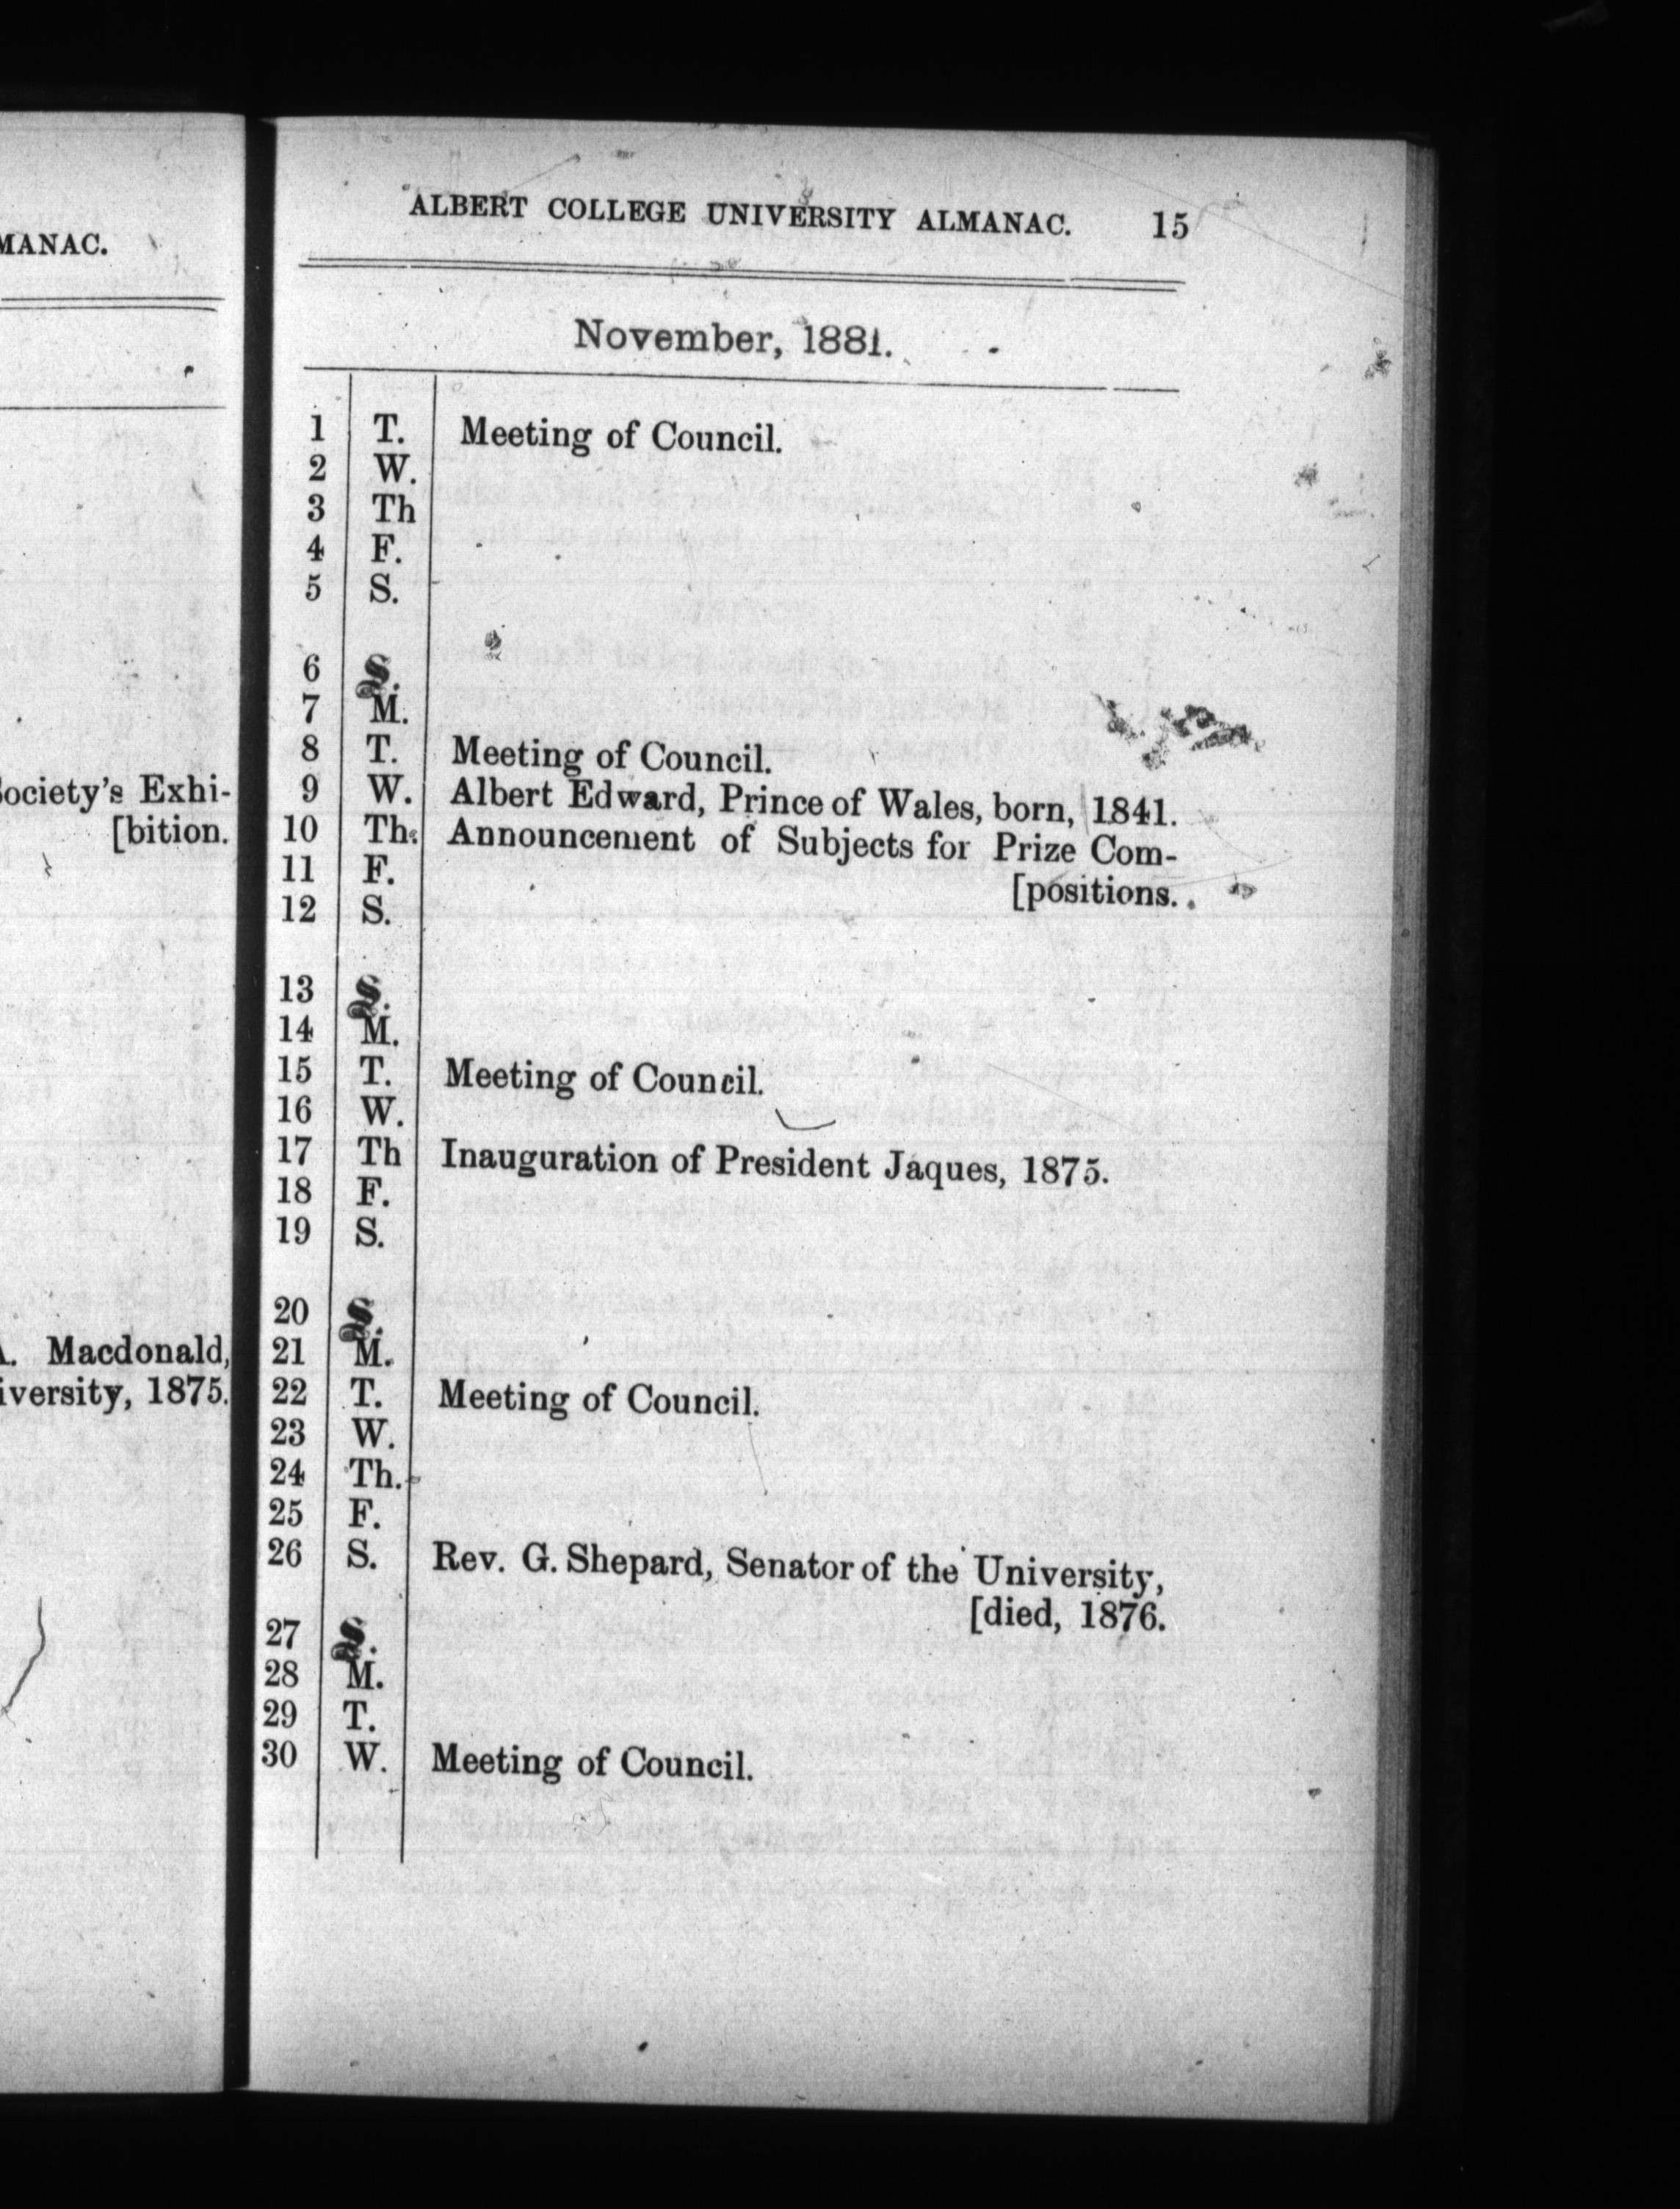 MANAC.
Society's Exhi-
[bition.
A. Macdonald,
iversity, 1875.
ALBERT COLLEGE UNIVERSITY ALMANAC. 15
November, 1881.
1 T. Meeting of Council.
2 W.
3 Th
4 F.
5 S.
6 S.
7 M.
8 T. Meeting of Council.
9 W. Albert Edward, Prince of Wales, born, 1841.
10 Th. Announcement of Subjects for Prize Com-
11 F. [positions.
12 S.
13 S.
14 M.
15 T. Meeting of Council.
16 W.
17 Th Inauguration of President Jaques, 1875.
18 F.
19 S.
20 S.
21 M.
22 T. Meeting of Council.
23 W.
24 Th.
25 F.
26 S. Rev. G. Shepard, Senator of the University,
[died, 1876.
27 S.
28 M.
29 T.
30 W. Meeting of Council.